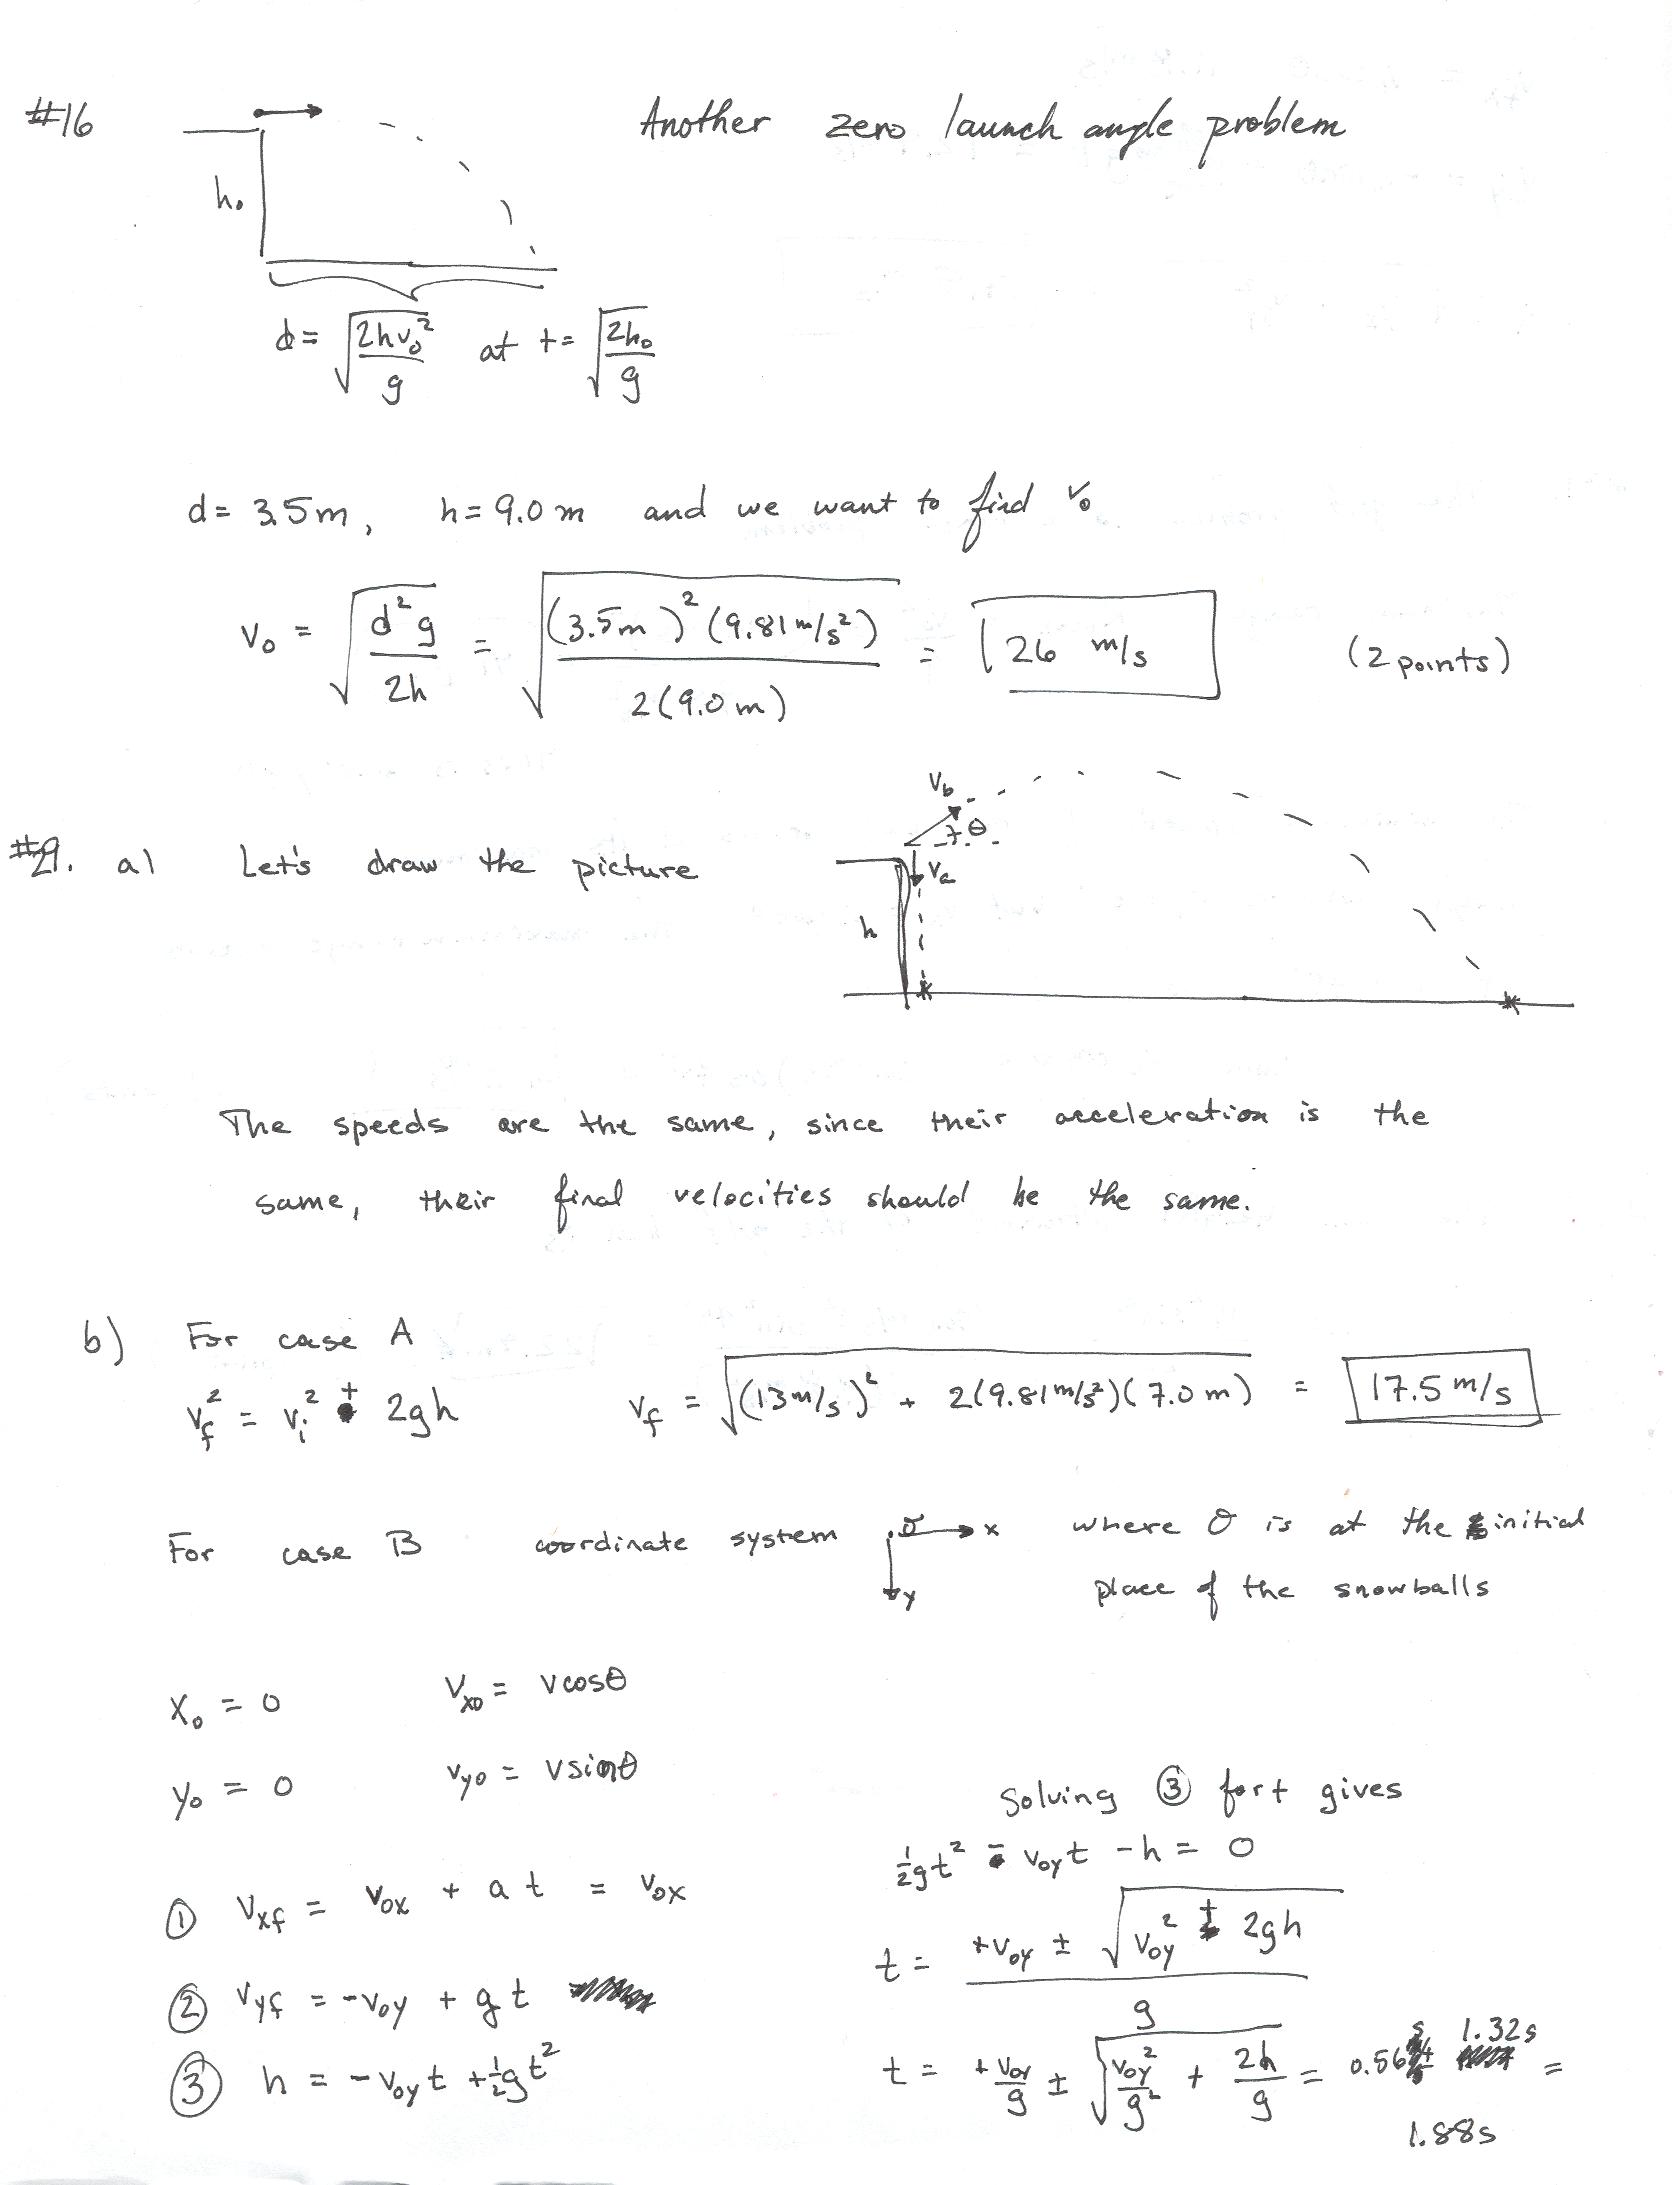 #16 Another zero launch angle problem
h₀
d = √(2hv₀²/g) at t = √(2h₀/g)
d = 3.5m, h = 9.0 m and we want to find v₀
v₀ = √(d²g/2h) = √((3.5m)²(9.81 m/s²)/2(9.0m)) = 26 m/s (2 points)
v_b
θ
#29. a) Let's draw the picture
v_a
h
The speeds are the same, since their acceleration is the
same, their final velocities should be the same.
b) For case A
v_f² = v_i² + 2gh v_f = √((13m/s)² + 2(9.81m/s²)(7.0m)) = 17.5 m/s
For case B coordinate system O x where O is at the initial
y place of the snowballs
x₀ = 0 v_x0 = vcosθ
y₀ = 0 v_y0 = vsinθ
① v_xf = v_0x + at = v_0x
② v_yf = -v_0y + gt
③ h = -v_0y t + ½gt²
Solving ③ for t gives
½gt² - v_0y t - h = 0
t = (+v_0y ± √(v_0y² + 2gh))/g
t = +v_0y/g ± √(v_0y²/g² + 2h/g) = 0.56 s 1.32s =
1.88s